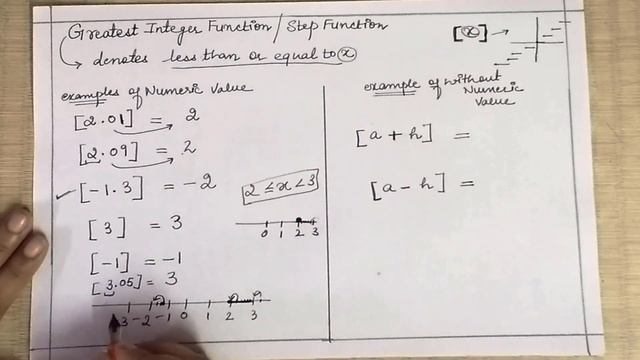 Greatest Integer Function / Step Function
[x] →
→ denotes less than or equal to x
examples of Numeric Value
[2.01] = 2
[2.09] = 2
[-1.3] = -2
2 ≤ x < 3
[3] = 3
0 1 2 3
[-1] = -1
[3.05] = 3
-3 -2 -1 0 1 2 3
example of without Numeric Value
[a + h] =
[a - h] =